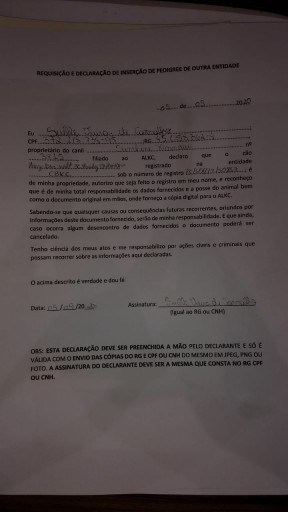 REQUISIÇÃO E DECLARAÇÃO DE INSERÇÃO DE PEDIGREE DE OUTRA ENTIDADE
de 2020
Eu de
CPF
proprietário do canil nº
filiado ao ALKC, declara que o cão
registrado na entidade
sob o número de registro e
de minha propriedade, autorizo que seja feito o registro em meu nome, e reconheço
que é de minha total responsabilidade os dados fornecidos e a posse do animal bem
como o documento original em mãos, onde forneço a cópia digital para a ALKC.
Sabendo-se que quaisquer causas ou consequências futuras recorrentes, oriundos por
informações deste documento fornecido, serão de minha responsabilidade. E que ainda,
caso ocorra algum desencontro de dados fornecidos o documento poderá ser
cancelado.
Tenho ciência dos meus atos e me responsabilizo por ações cíveis e criminais que
possam recorrer sobre as informações aqui declaradas.
O acima descrito é verdade e dou fé
Data: Assinatura:
(Igual ao RG ou CNH)
OBS: ESTA DECLARAÇÃO DEVE SER PREENCHIDA A MÃO PELO DECLARANTE E SÓ É
VÁLIDA COM O ENVIO DAS CÓPIAS DO RG E CPF OU CNH DO MESMO EM JPEG, PNG OU
FOTO. A ASSINATURA DO DECLARANTE DEVE SER A MESMA QUE CONSTA NO RG CPF
OU CNH.